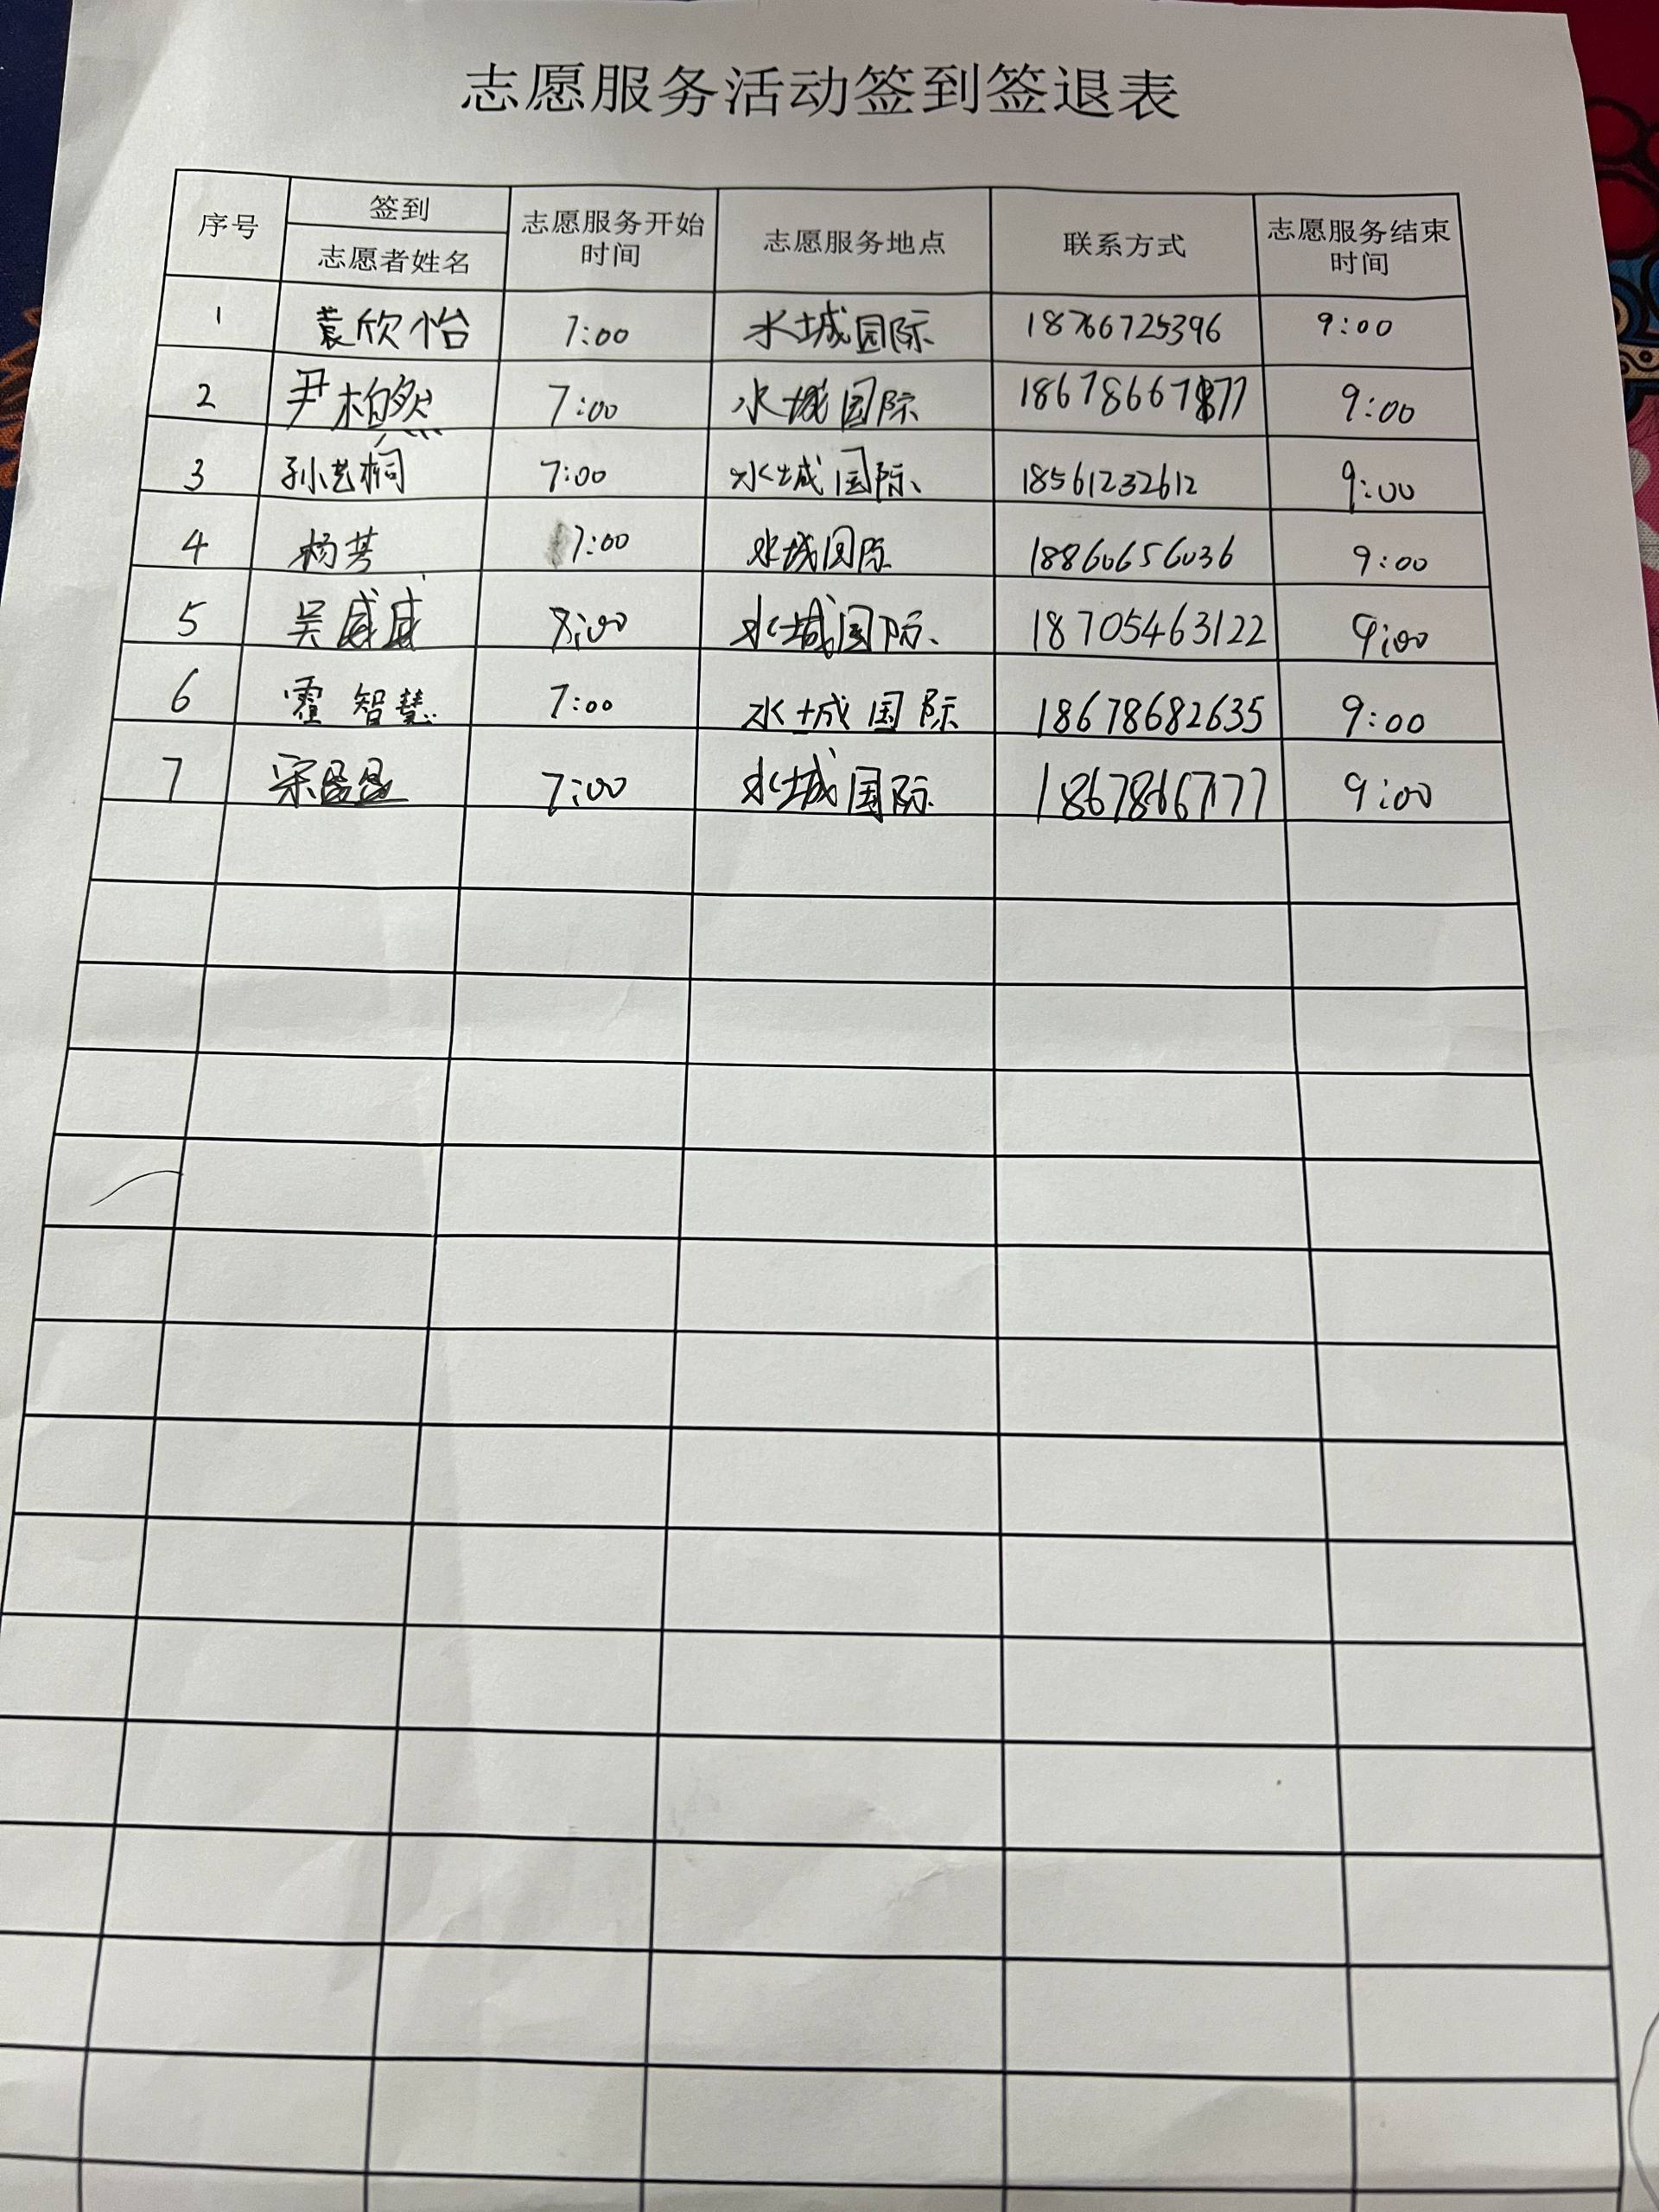 志愿服务活动签到签退表
序号 签到 志愿服务开始时间 志愿服务地点 联系方式 志愿服务结束时间
志愿者姓名
1 袁欣怡 7:00 水城国际 18766725396 9:00
2 尹柏然 7:00 水城国际 18678667877 9:00
3 孙艺桐 7:00 水城国际 18561232612 9:00
4 杨芳 7:00 水城国际 18860656036 9:00
5 吴威威 8:00 水城国际 18705463122 9:00
6 霍智慧 7:00 水城国际 18678682635 9:00
7 宋 7:00 水城国际 9:00